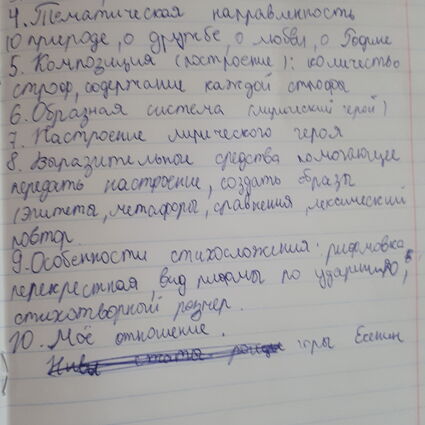 4. Тематическая направленность
(о природе, о дружбе, о любви, о Родине
5. Композиция (построение): количество
строф, содержание каждой строфы
6. Образная система (лирический герой)
7. Настроение лирического героя
8. Выразительные средства помогающие
передать настроение, создать образы
(эпитеты, метафоры, сравнения, лексический
повтор.
9. Особенности стихосложения: рифмовка
перекрестная, вид рифмы по ударению,
стихотворный размер.
10. Моё отношение.
Нивы сжаты рощи Есенин